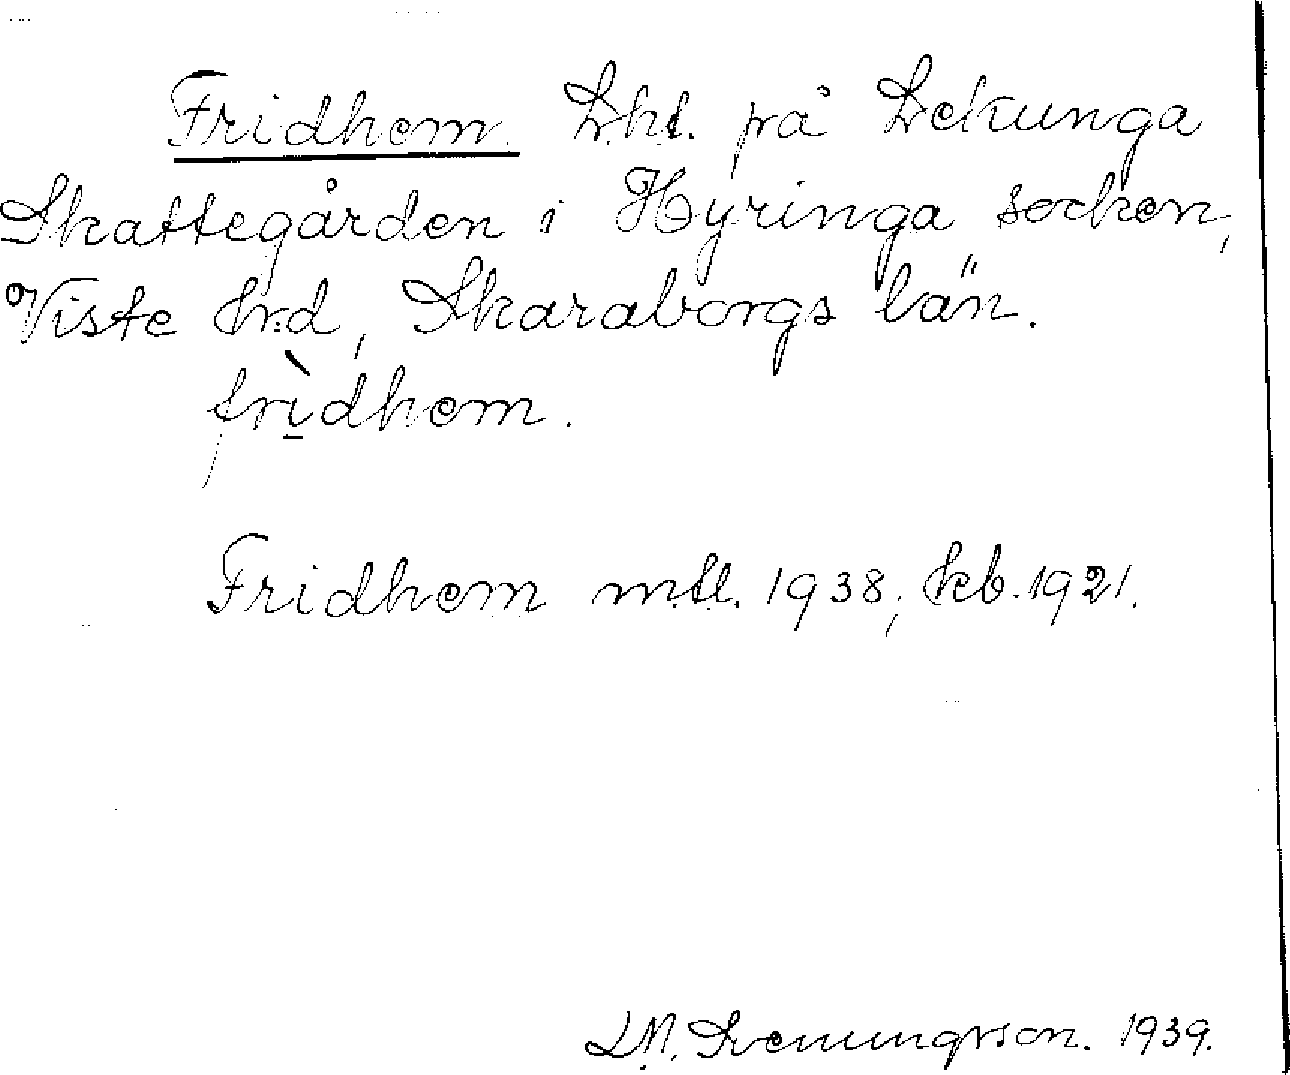 Fridhem. Lht. på Lekunga
Skattegården i Hyringa socken,
Viste hrd, Skaraborgs län.
frìdhem.
Fridhem mtl. 1938; keb. 1921.
1939.